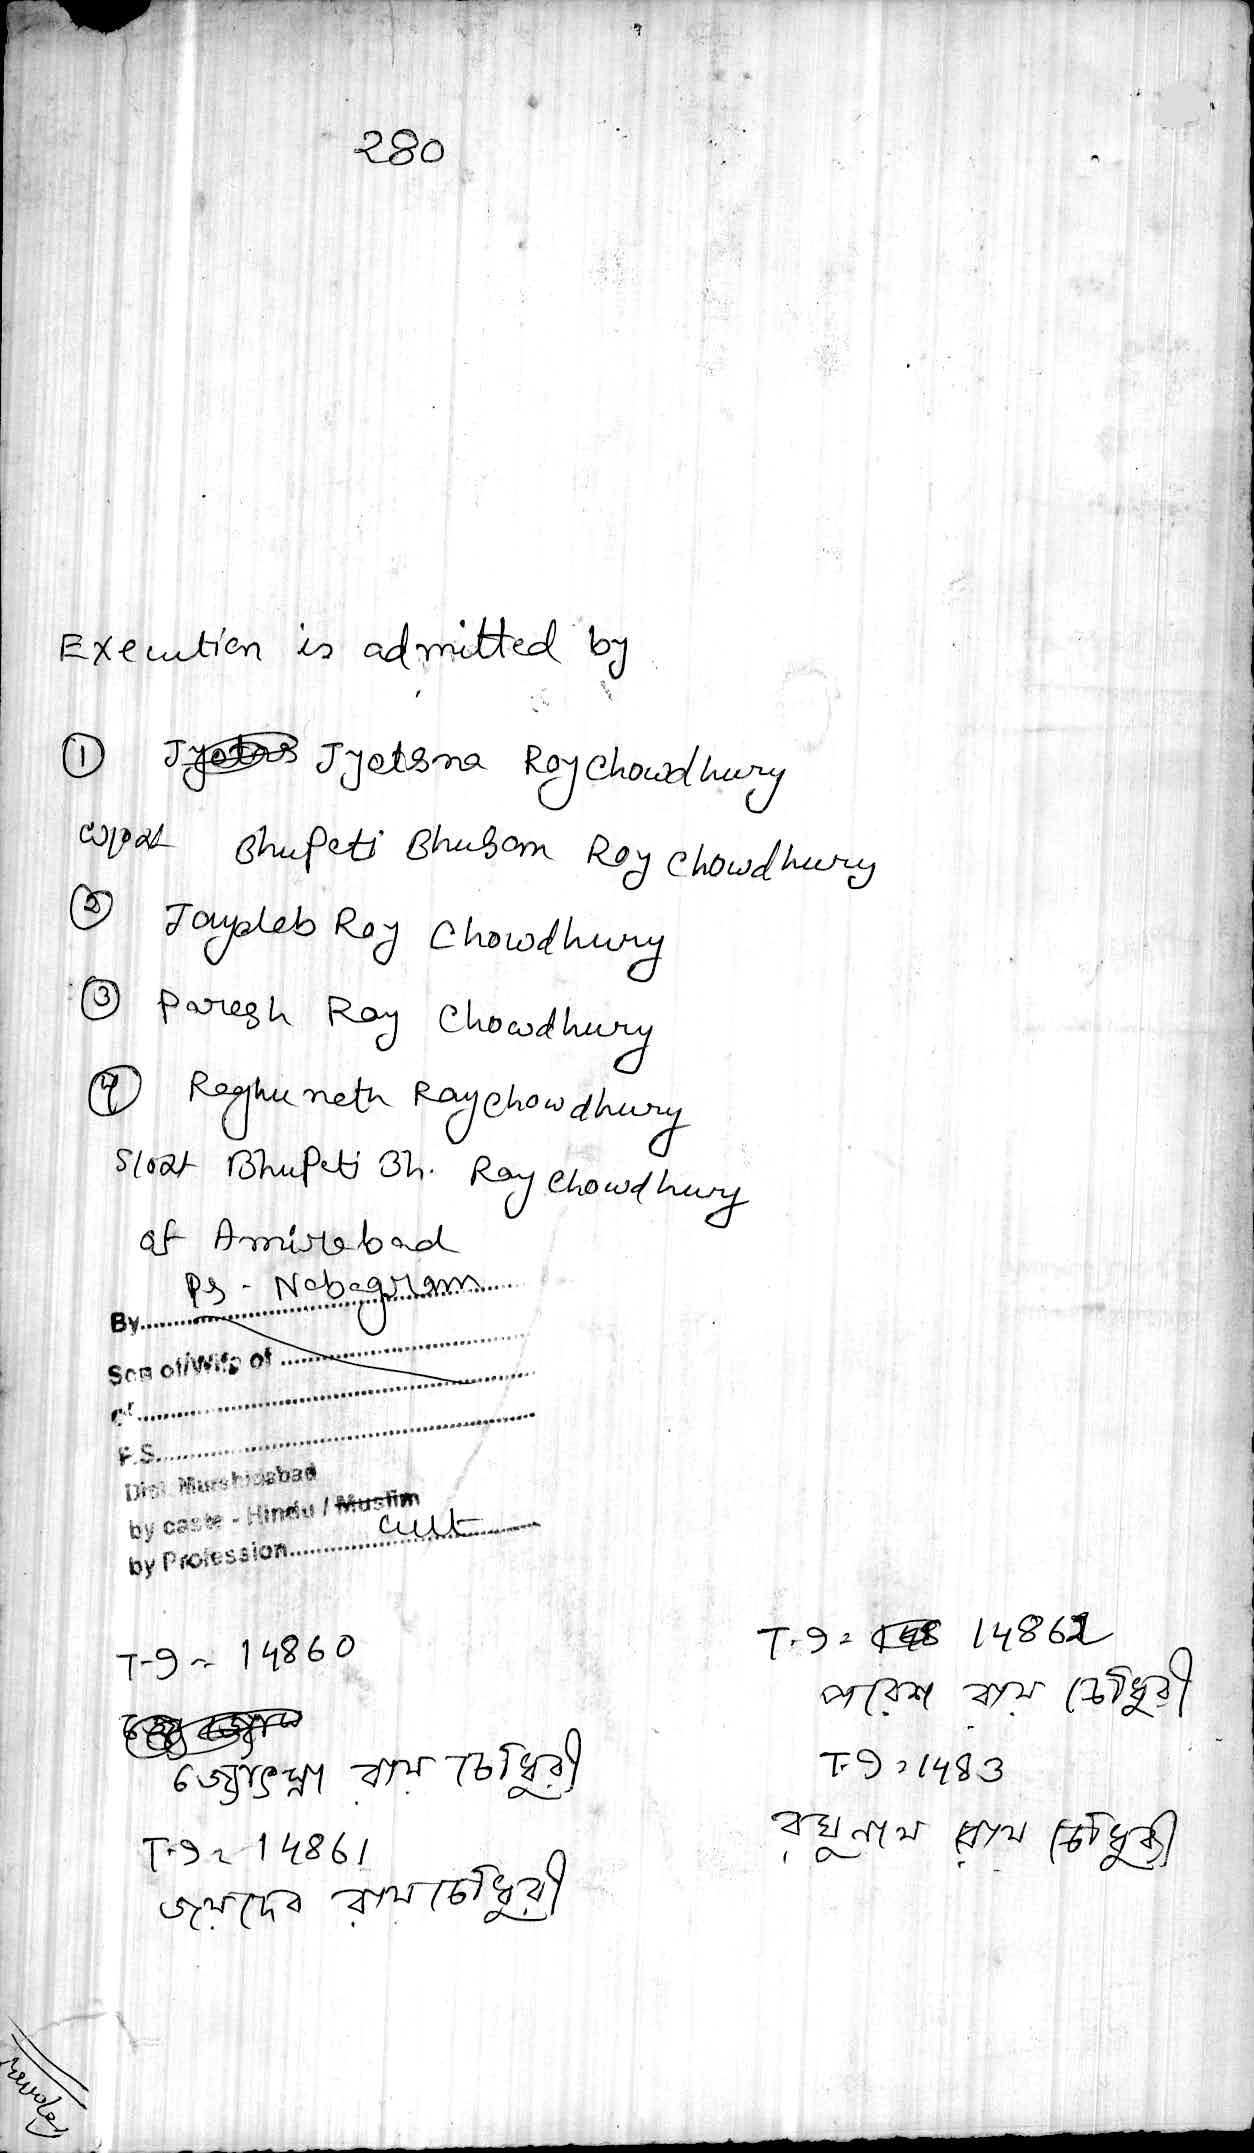 280
Execution is admitted by
① Jyotsna Roy Chowdhury
Bhupati Bhusan Roy Chowdhury
② Jaydeb Roy Chowdhury
③ Paresh Roy Chowdhury
④ Raghunath Roy Chowdhury
Bhupati Bh. Roy Chowdhury
of Amirabad
PS - Nabagram
By
Son of/Wife of
of
P.S.
Dist. Murshidabad
by caste - Hindu / Muslim
by Profession cult
T-9 = 14860
জ্যোৎস্না রায় চৌধুরী
T-9 = 14861
জয়দেব রায় চৌধুরী
T-9 = 14862
পরেশ রায় চৌধুরী
T-9 = 1483
রঘুনাথ রায় চৌধুরী